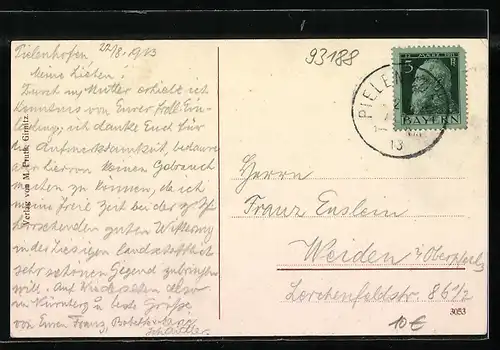 Pielenhofen 22/8. 1913
Meine Lieben!
Durch m. Mutter erhielt ich
Kenntnis von Eurer frdl. Ein-
ladung; ich danke Euch für
die Aufmerksamkeit, bedaure
aber hiervon keinen Gebrauch
machen zu können, da ich
meine freie Zeit bei der z. Zt.
herrschenden guten Witterung
in der hiesigen landschaftlich
sehr schönen Gegend zubringen
will. Auf Wiedersehen also
in Nürnberg u. beste Grüße
von Eurem Franz,
Verlag von M. Girnitz.
93188
5
BAYERN
PIELEN
13
Herrn
Franz Enslein
Weiden i/Oberpfalz
Lerchenfeldstr. 86 1/2
3053
10€